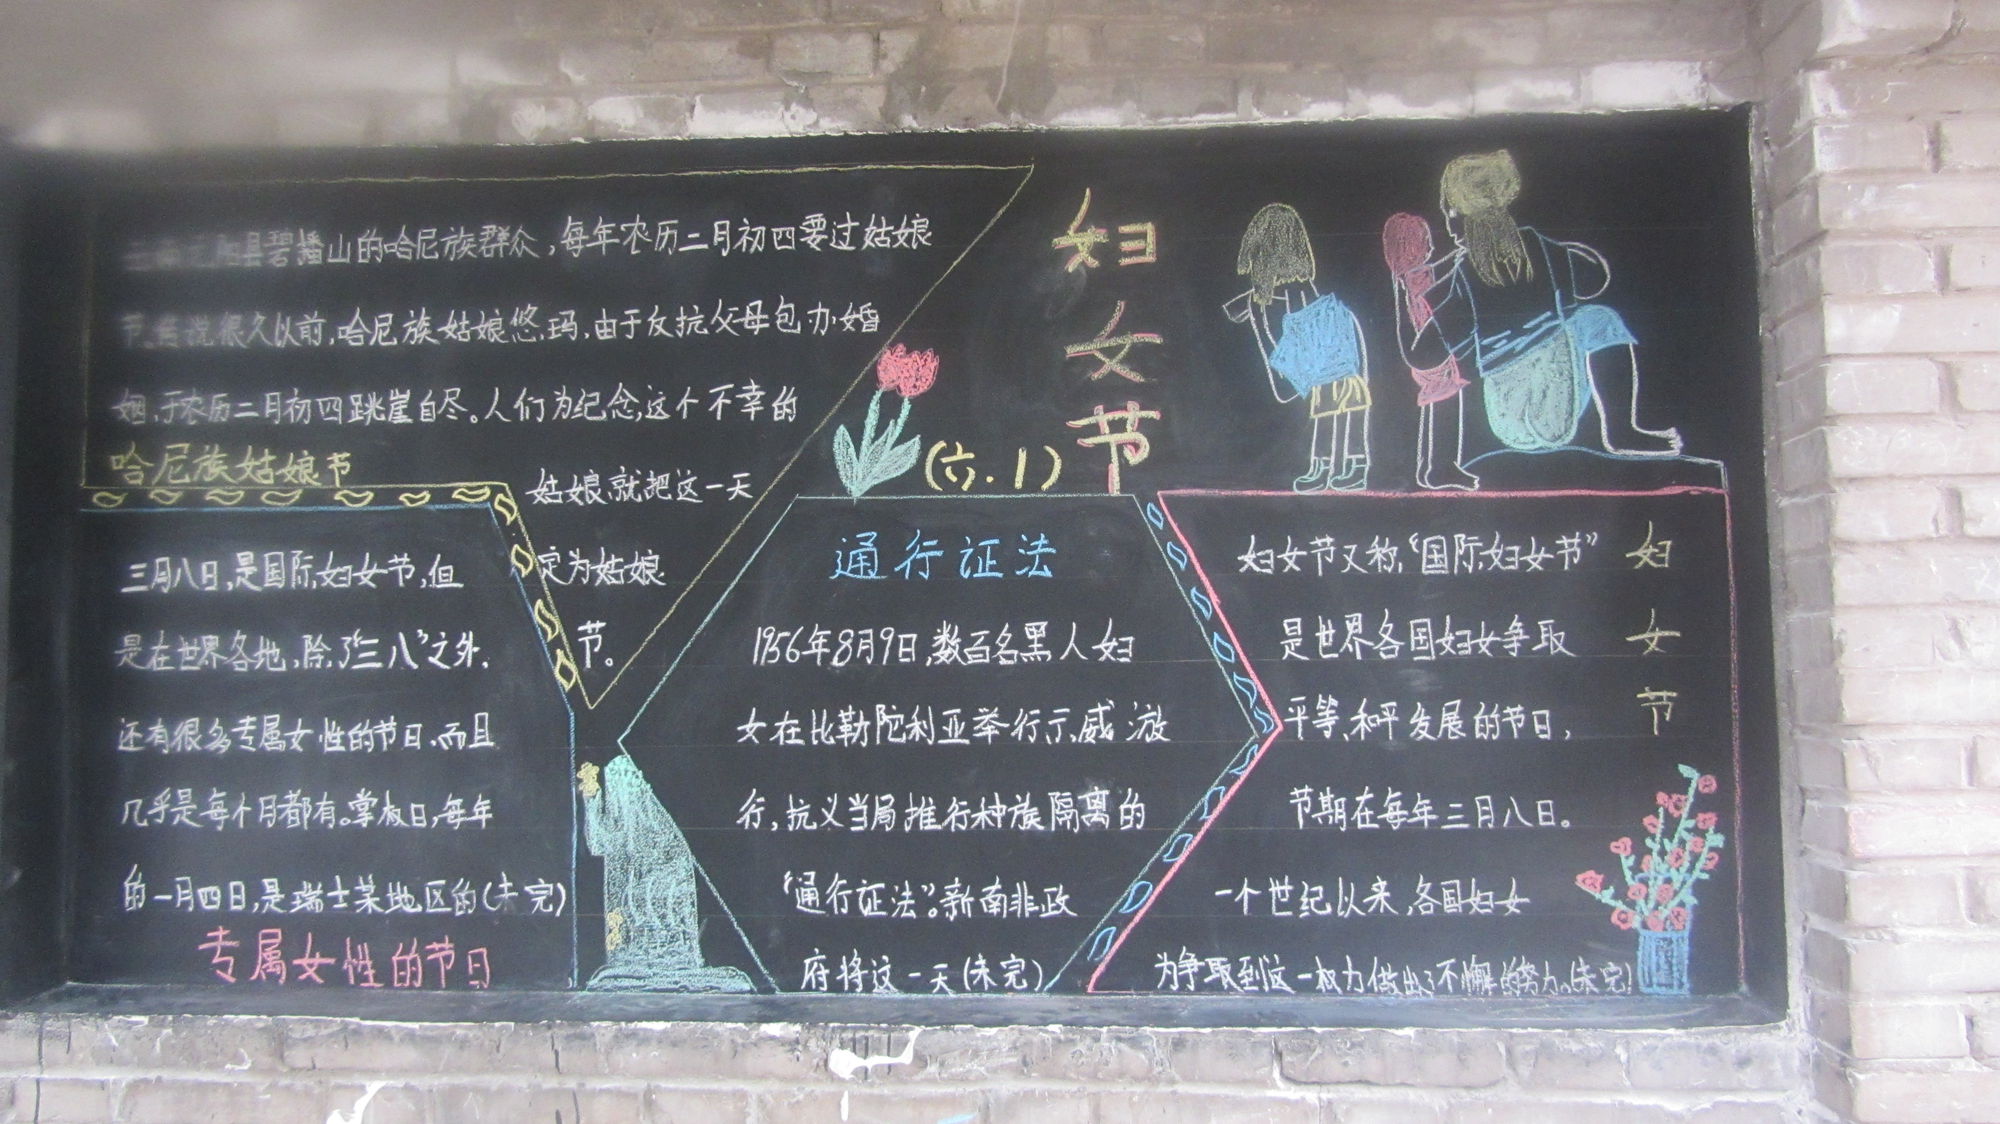 县碧播山的哈尼族群众，每年农历二月初四要过姑娘
节。传说很久以前，哈尼族姑娘悠玛，由于反抗父母包办婚
姻，于农历二月初四跳崖自尽。人们为纪念这个不幸的
姑娘，就把这一天
定为姑娘
节。
哈尼族姑娘节
三月八日，是国际妇女节，但
是在世界各地，除了“三八”之外，
还有很多专属女性的节日，而且
几乎是每个月都有。掌权日，每年
的一月四日，是瑞士某地区的(未完)
专属女性的节日
妇女节
(六.1)
通行证法
1956年8月9日，数百名黑人妇
女在比勒陀利亚举行示威游
行，抗义当局推行种族隔离的
“通行证法”。新南非政
府将这一天(未完)
妇女节
妇女节又称，“国际妇女节”
是世界各国妇女争取
平等、和平发展的节日，
节期在每年三月八日。
一个世纪以来，各国妇女
为争取到这一权力做出了不懈的努力。(未完)